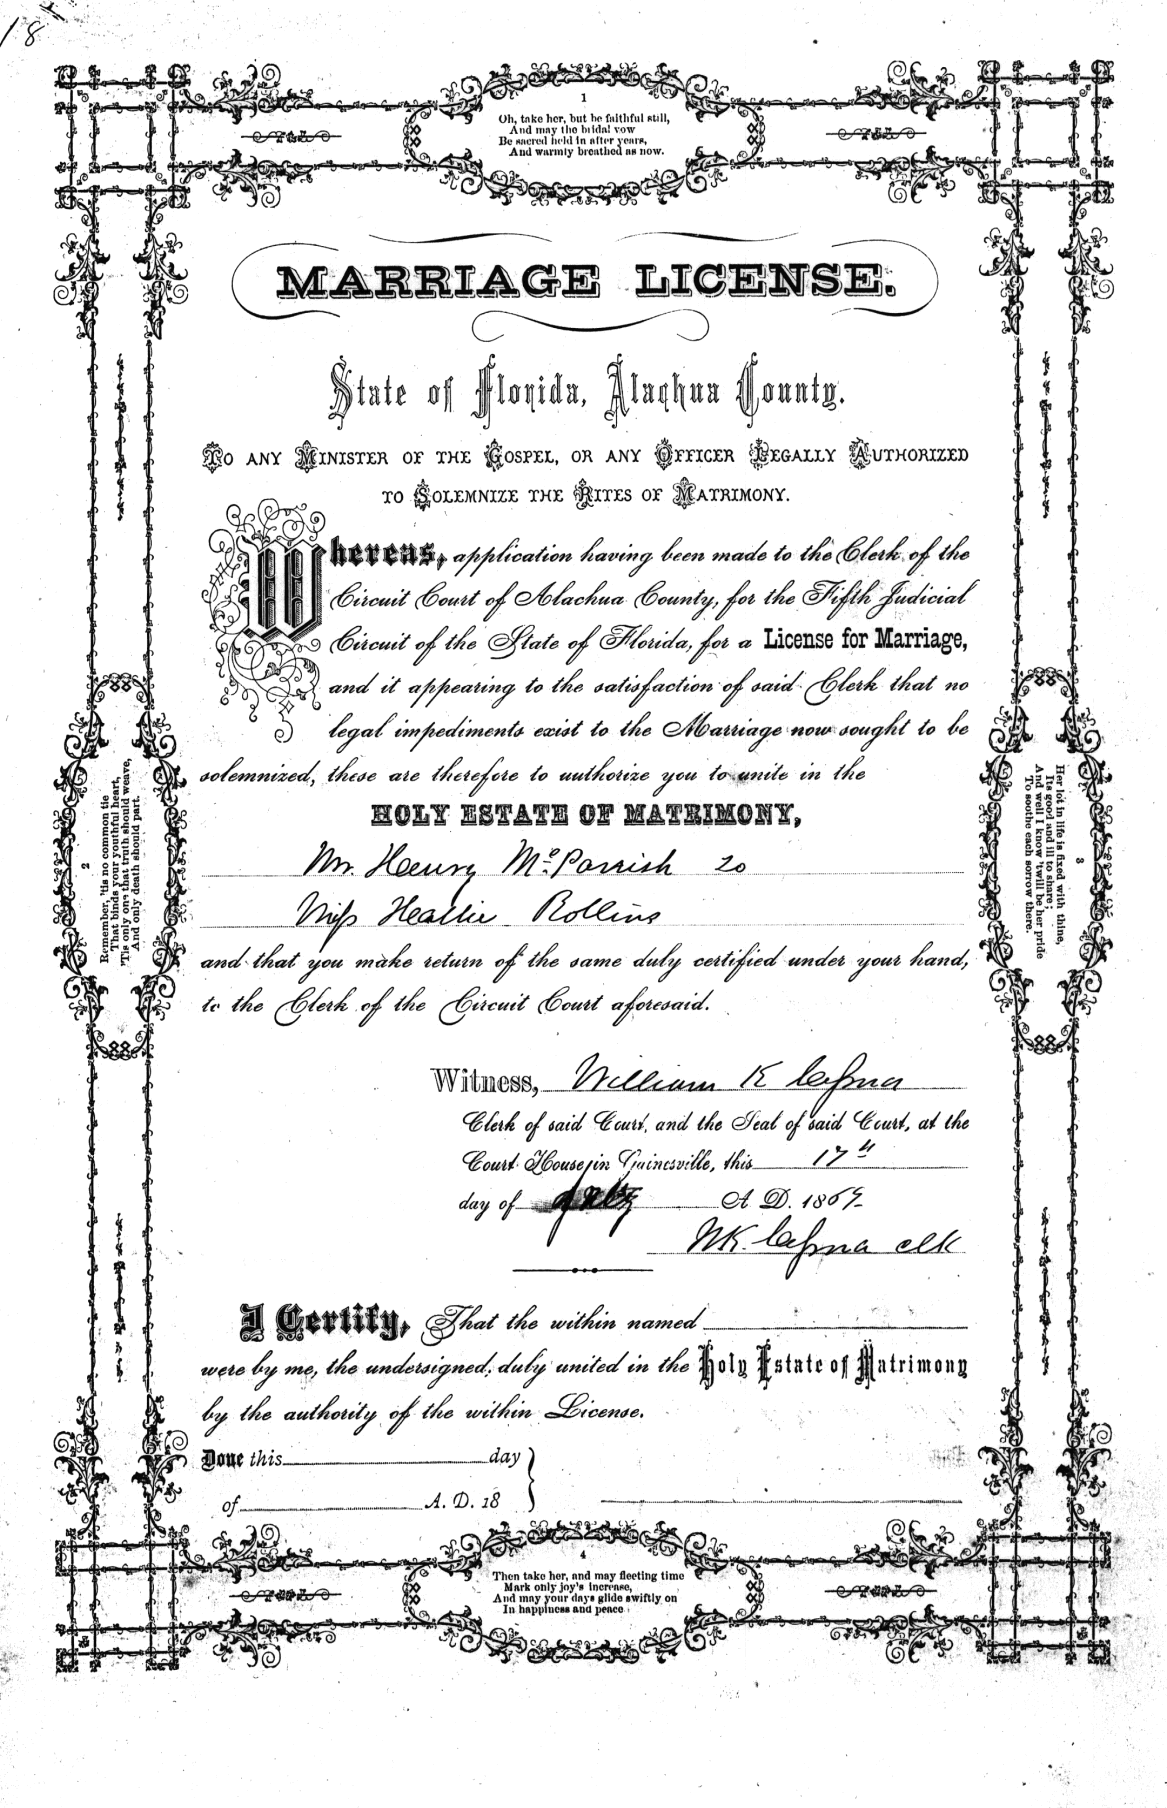 18
1
Oh, take her, but be faithful still,
And may the bridal vow
Be sacred held in after years,
And warmly breathed as now.
MARRIAGE LICENSE.
State of Florida, Alachua County.
TO ANY MINISTER OF THE GOSPEL, OR ANY OFFICER LEGALLY AUTHORIZED
TO SOLEMNIZE THE RITES OF MATRIMONY.
Whereas, application having been made to the Clerk of the
Circuit Court of Alachua County, for the Fifth Judicial
Circuit of the State of Florida, for a License for Marriage,
and it appearing to the satisfaction of said Clerk that no
legal impediments exist to the Marriage now sought to be
solemnized, these are therefore to authorize you to unite in the
HOLY ESTATE OF MATRIMONY,
Mr. Henry McParrish to
Miss Rollins
and that you make return of the same duly certified under your hand,
to the Clerk of the Circuit Court aforesaid.
Witness, William K Cessna
Clerk of said Court, and the Seal of said Court, at the
Court House in Gainesville, this 17th
day of July A. D. 1869
WK. Cessna clk
I Certify, That the within named
were by me, the undersigned, duly united in the Holy Estate of Matrimony
by the authority of the within License.
Done this day
of A. D. 18
2
Remember, 'tis no common tie
That binds your youthful heart,
'Tis only one that truth should weave,
And only death should part.
3
Her lot in life is fixed with thine,
Its good and ill to share;
And well I know 'twill be her pride
To soothe each sorrow there.
4
Then take her, and may fleeting time
Mark only joy's increase,
And may your days glide swiftly on
In happiness and peace